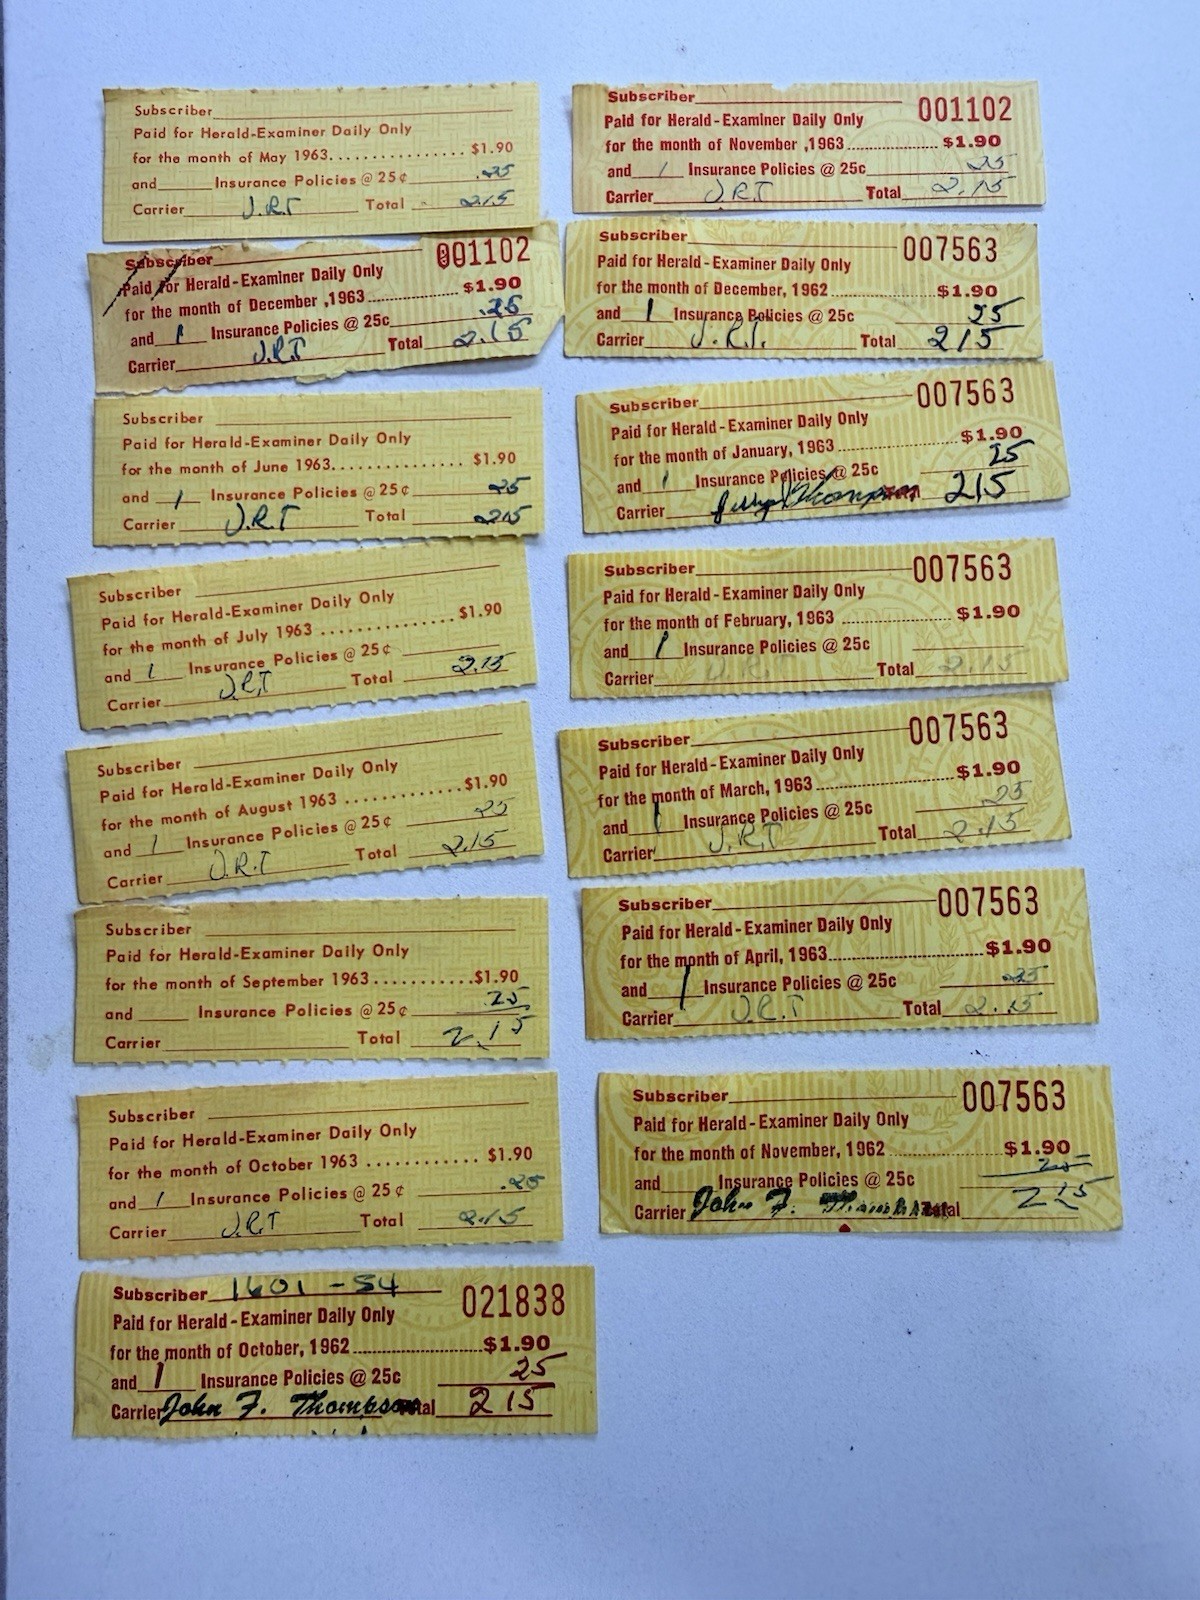 Subscriber
Paid for Herald-Examiner Daily Only
for the month of May 1963............... $1.90
and Insurance Policies @ 25¢ .25
Carrier J.R.T Total 2.15
Subscriber 001102
Paid for Herald-Examiner Daily Only
for the month of December ,1963............... $1.90
and 1 Insurance Policies @ 25c .25
Carrier J.R.T Total 2.15
Subscriber
Paid for Herald-Examiner Daily Only
for the month of June 1963.............. $1.90
and 1 Insurance Policies @ 25¢ 25
Carrier J.R.T Total 215
Subscriber
Paid for Herald-Examiner Daily Only
for the month of July 1963 .............. $1.90
and 1 Insurance Policies @ 25¢
Carrier J.R.T Total 2.15
Subscriber
Paid for Herald-Examiner Daily Only
for the month of August 1963 ............ $1.90
and 1 Insurance Policies @ 25¢ 25
Carrier J.R.T Total 2.15
Subscriber
Paid for Herald-Examiner Daily Only
for the month of September 1963...........$1.90
and Insurance Policies @ 25¢ 25
Carrier Total 2.15
Subscriber
Paid for Herald-Examiner Daily Only
for the month of October 1963 ............ $1.90
and 1 Insurance Policies @ 25¢ .25
Carrier J.R.T Total 2.15
Subscriber 1601 - 54 021838
Paid for Herald-Examiner Daily Only
for the month of October, 1962...............$1.90
and 1 Insurance Policies @ 25c 25
Carrier John F. Thompson Total 215
Subscriber 001102
Paid for Herald-Examiner Daily Only
for the month of November ,1963............... $1.90
and 1 Insurance Policies @ 25c 25
Carrier J.R.T Total 2.15
Subscriber 007563
Paid for Herald-Examiner Daily Only
for the month of December, 1962...............$1.90
and 1 Insurance Policies @ 25c 25
Carrier J.R.T. Total 215
Subscriber 007563
Paid for Herald-Examiner Daily Only
for the month of January, 1963...............$1.90
and 1 Insurance Policies @ 25c 25
Carrier Thompson 215
Subscriber 007563
Paid for Herald-Examiner Daily Only
for the month of February, 1963 ............... $1.90
and 1 Insurance Policies @ 25c
Carrier J.R.T Total 2.15
Subscriber 007563
Paid for Herald-Examiner Daily Only
for the month of March, 1963...............$1.90
and 1 Insurance Policies @ 25c 25
Carrier J.R.T Total 2.15
Subscriber 007563
Paid for Herald-Examiner Daily Only
for the month of April, 1963...............$1.90
and 1 Insurance Policies @ 25c 25
Carrier J.R.T Total 2.15
Subscriber 007563
Paid for Herald-Examiner Daily Only
for the month of November, 1962............... $1.90
and Insurance Policies @ 25c 25
Carrier John F. Total 215